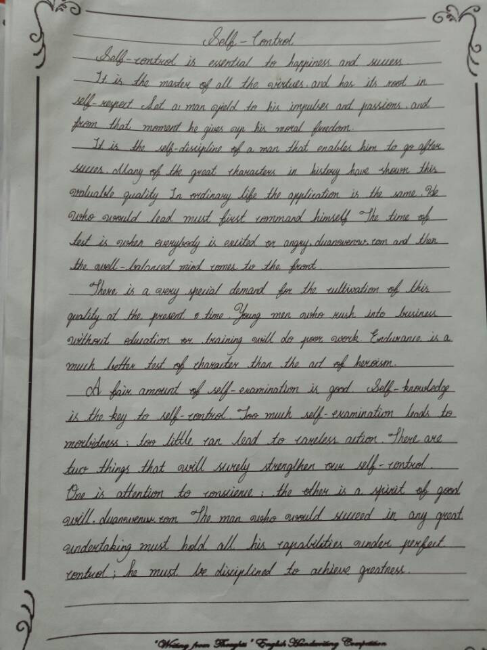 Self-Control
Self-control is essential to happiness and success
It is the master of all the virtues, and has its root in
self-respect Let a man yield to his impulses and passions, and
from that moment he gives up his moral freedom.
It is the self-discipline of a man that enables him to go after
success. Many of the great characters in history have shown this
valuable quality In ordinary life the application is the same He
who would lead must first command himself The time of
test is when everybody is excited or angry, duanwenw.com and then
the well-balanced mind comes to the front.
There is a very special demand for the cultivation of this
quality at the present time Young men who rush into business
without education or training will do poor work Endurance is a
much better test of character than the act of heroism.
A fair amount of self-examination is good. Self-knowledge
is the key to self-control. Too much self-examination leads to
morbidness; too little can lead to careless action. There are
two things that will surely strengthen our self-control.
One is attention to conscience; the other is a spirit of good
will. duanwenw.com The man who would succeed in any great
undertaking must hold all his capabilities under perfect
control; he must be disciplined to achieve greatness.
"Writing from Thoughts" English Handwriting Competition